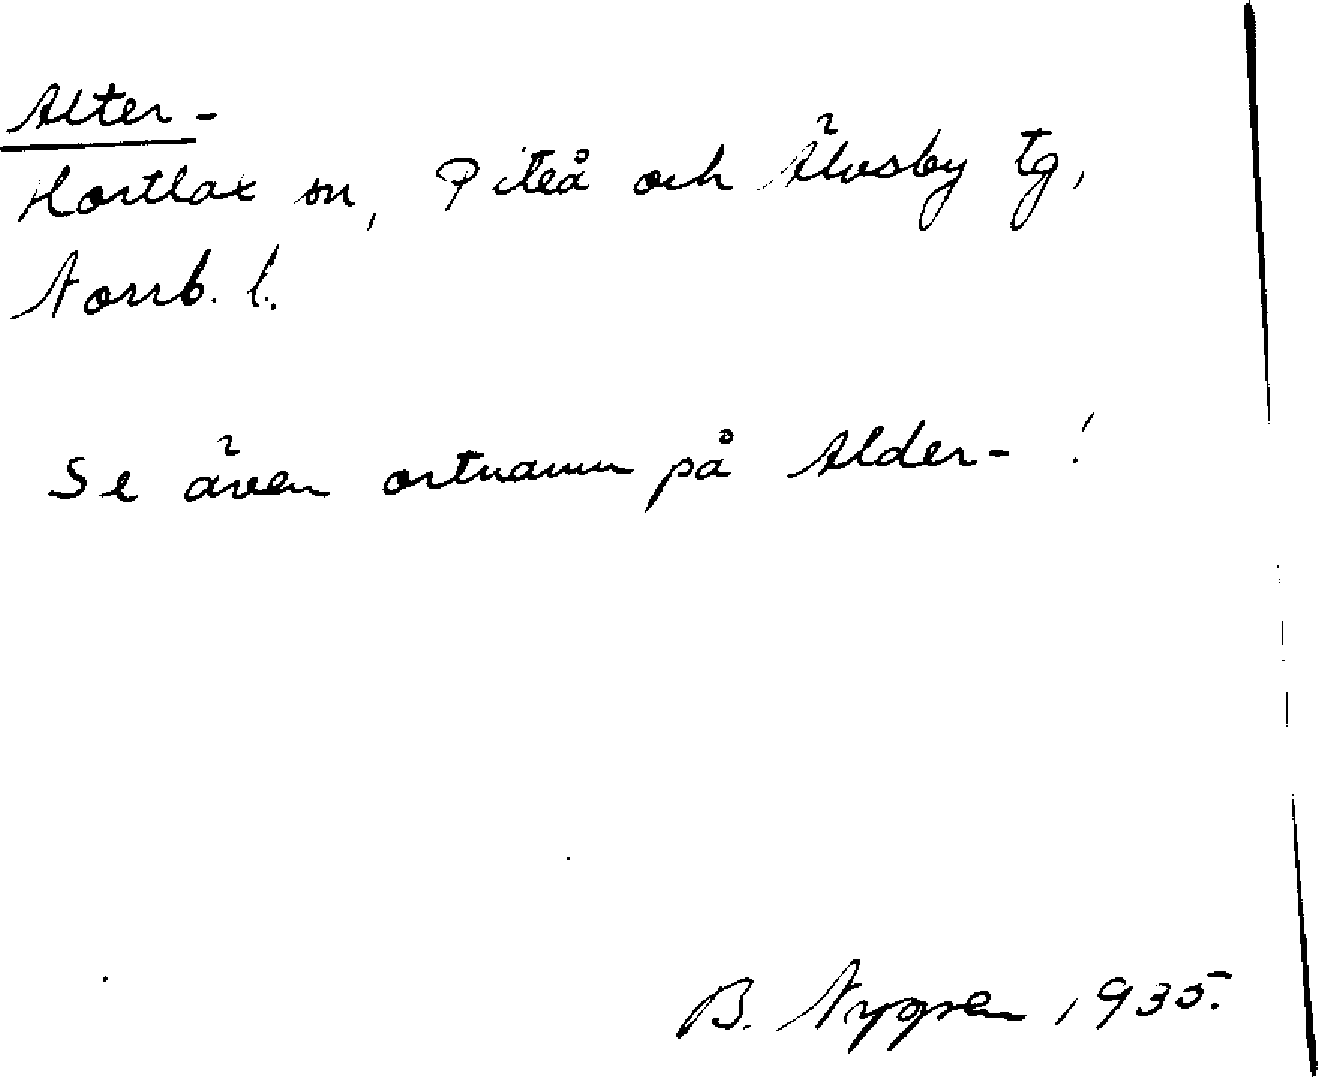 Alter-
Hortlax sn, Piteå och Älvsby tg,
Norrb. l.
Se även ortnamn på Alder- !
B. Nygren 1935.